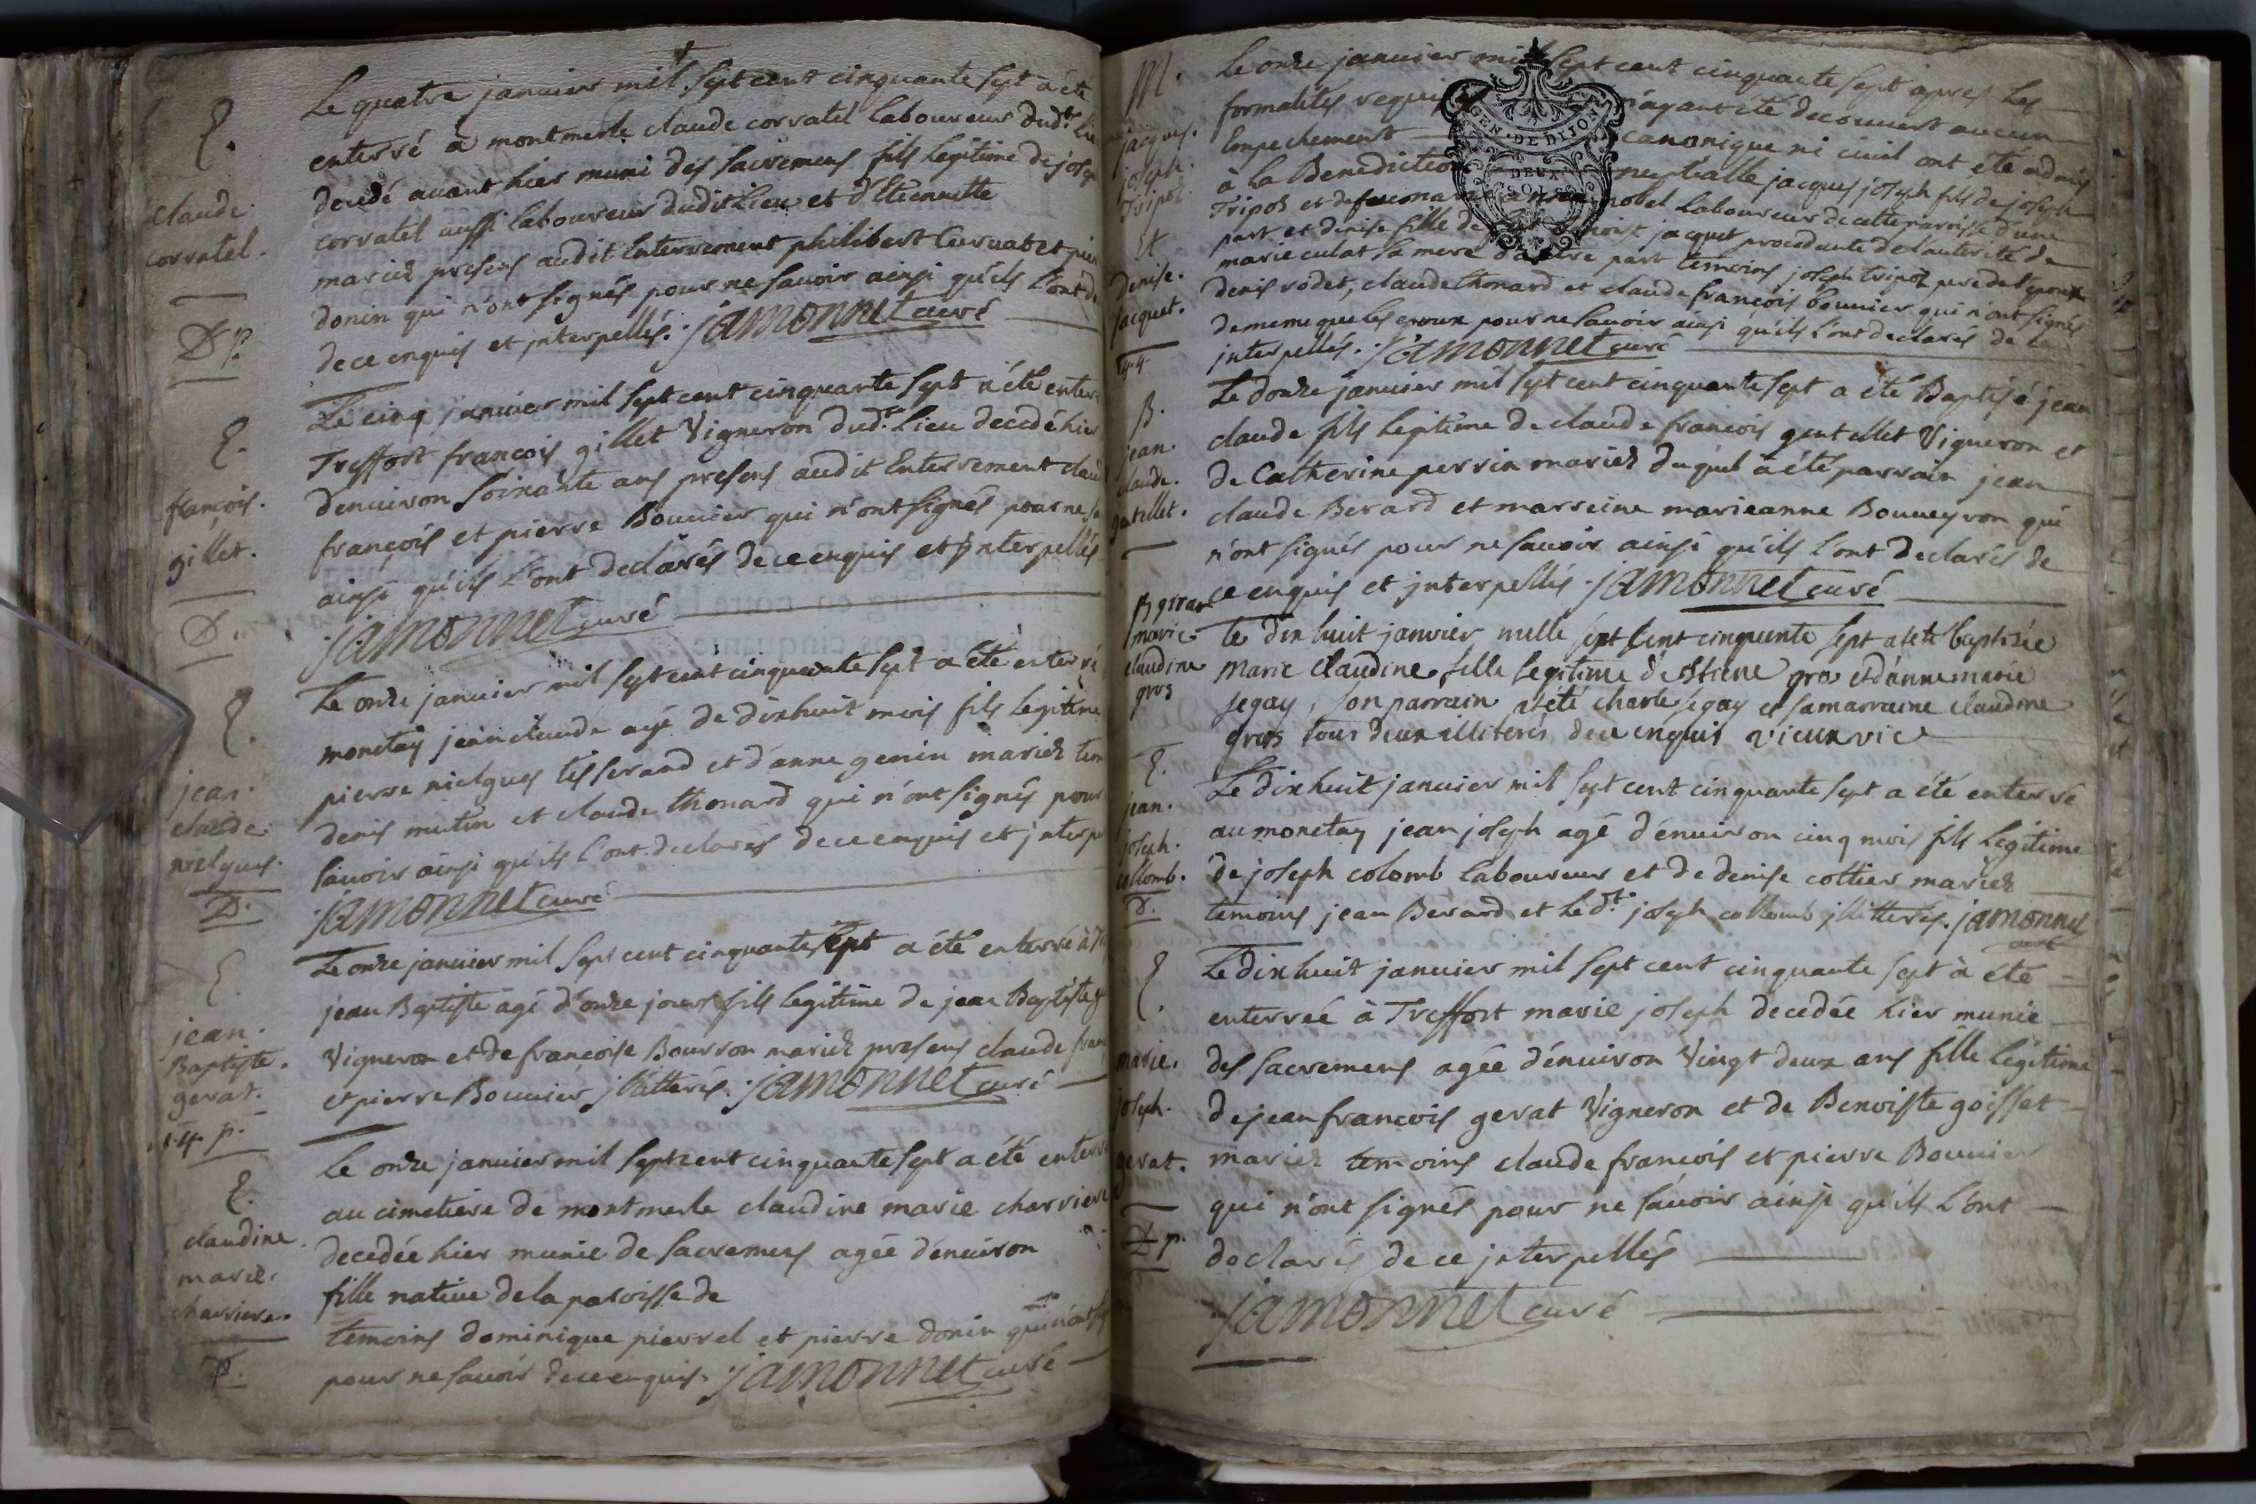 E.
claude.
corvatel.
D p.
Le quatre janvier mil sept cent cinquante sept a été
enterré a montmerle claude corvatel laboureur dud.t lieu
decedé avant hier muni des sacremens fils legitime de joseph
corvatel aussi laboureur dudit lieu et d'Etiennette
mariez presens audit Enterrement philibert et
donin qui n'ont signés pour ne savoir ainsi qu'ils l'ont
de ce enquis et jnterpellés. jamonnet curé
E.
françois.
gillet.
D.
Le cinq janvier mil sept cent cinquante sept a été enterré
Treffort francois gillet Vigneron dud.t lieu decedé hier
d'environ soixante ans presens audit Enterrement
françois et pierre Bouvier qui n'ont signés pour ne
ainsi qu'ils l'ont declarés de ce enquis et jnterpellés
jamonnet curé
E.
jean.
claude.
nielgues.
D.
Le onze janvier mil sept cent cinquante sept a été enterré
monetay jean claude agé de dixhuit mois fils legitime
pierre nielgues tisserand et d'anne genin mariez
denis mutin et claude thonard qui n'ont signés pour
savoir ainsi qu'ils l'ont declarés de ce enquis et
jamonnet curé
E.
jean.
Baptiste.
gerat.
p.
Le onze janvier mil sept cent cinquante sept a été enterré à
jean Baptiste agé d'onze jours fils legitime de jean Baptiste
Vigneron et de françoise Bourron mariez presens claude
et pierre Bouvier jllitterés. jamonnet curé
E.
claudine.
marie.
charriere.
p.
Le onze janvier mil sept cent cinquante sept a été enterré
au cimetiere de montmerle claudine marie charriere
decedée hier munie de sacremens agée d'environ
fille native de la paroisse de
temoins dominique pierrel et pierre donin qui n'ont
pour ne savoir de ce enquis. jamonnet curé
M.
jacques.
joseph.
Tripoz.
et
denise.
jacquet.
Le onze janvier mil sept cent cinquante sept apres les
formalités n'ayant été decouvert aucun
Empechement canonique ni civil ont été admis
à la Benediction nuptialle jacques joseph fils de joseph
Tripoz et de nobel Laboureur de cette parroisse d'une
part et denise fille de jacquet procedante de l'autorité de
marie culat sa mere d'autre part temoins joseph tripoz pere de l'epoux
denis rodet, claude thonard et claude françois bouvier qui n'ont signés
de meme que les epoux pour ne savoir ainsi qu'ils l'ont declarés de
jnterpellés. jamonnet curé
GEN. DE DIJON
DEUX
SOLS
B.
jean.
claude.
gentillet.
Le douze janvier mil sept cent cinquante sept a été Baptisé jean
claude fils legitime de claude francois gentillet Vigneron et
de Catherine perrin mariez duquel a été parrain jean
claude Berard et marreine marieanne Bouveyron qui
n'ont signés pour ne savoir ainsi qu'ils l'ont declarés de
ce enquis et jnterpellés. jamonnet curé
marie.
claudine
gros
le dix huit janvier mille sept cent cinquante sept a été baptisée
marie claudine fille legitime d'Etiene gros et d'anne marie
segay, son parrain a été charle segay et sa marraine claudine
gros tous deux illiterés de ce enquis vieux vic
E.
jean.
joseph.
collomb.
D.
Le dixhuit janvier mil sept cent cinquante sept a été enterré
au monetay jean joseph agé d'environ cinq mois fils legitime
de joseph colomb laboureur et de denise cottier mariez
temoins jean Berard et led.t joseph collomb jllitterés. jamonnet
curé
E.
marie.
joseph.
gerat.
D p.
Le dixhuit janvier mil sept cent cinquante sept à été
enterrée à Treffort marie joseph decedée hier munie
des sacremens agée d'environ Vingt deux ans fille legitime
de jean francois gerat Vigneron et de Benoiste goisset
mariez temoins claude francois et pierre Bouvier
qui n'ont signés pour ne savoir ainsi qu'ils l'ont
declarés de ce jnterpellés
jamonnet curé